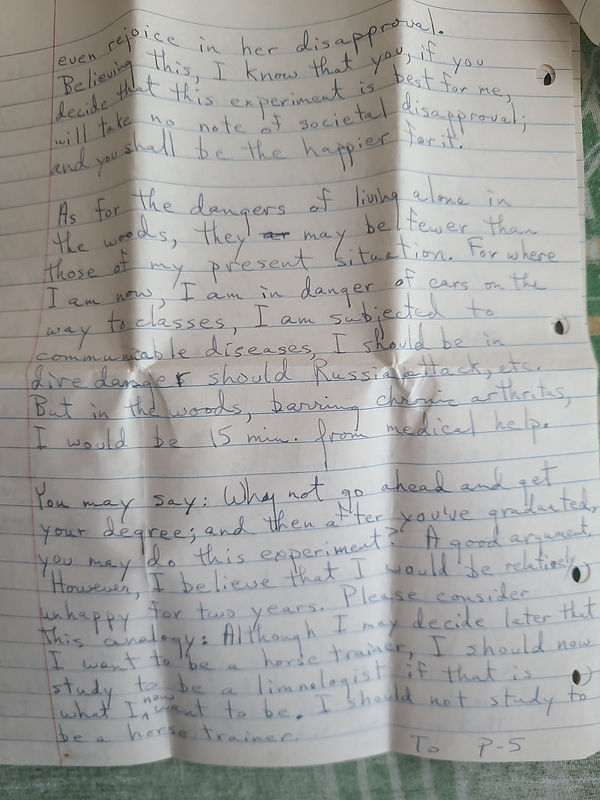 even rejoice in her disapproval.
Believing this, I know that you, if you
decide that this experiment is best for me,
will take no note of societal disapproval;
and you shall be the happier for it.
As for the dangers of living alone in
the woods, they ar may be fewer than
those of my present situation. For where
I am now, I am in danger of cars on the
way to classes, I am subjected to
communicable diseases, I should be in
dire danger should Russia attack, etc.
But in the woods, barring chronic arthritus,
I would be 15 min. from medical help.
You may say: Why not go ahead and get
your degree; and then after you've graduated,
you may do this experiment? A good argument.
However, I believe that I would be relatively
unhappy for two years. Please consider
this analogy: Although I may decide later that
I want to be a horse trainer, I should now
study to be a limnologist if that is
what I now want to be. I should not study to
be a horse trainer.
To P-5